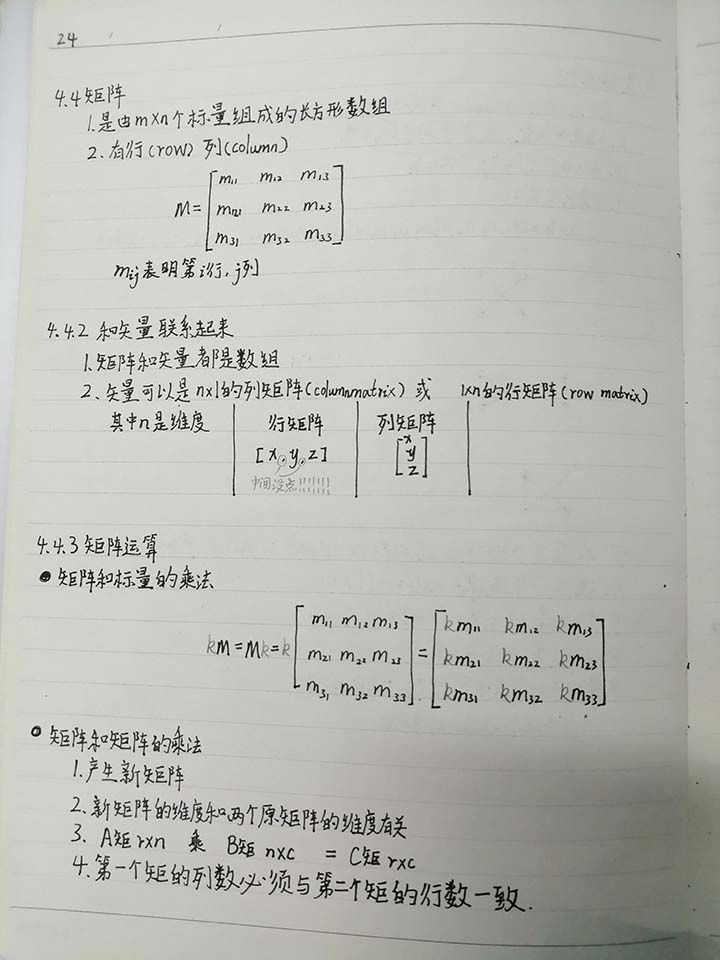 24
4.4 矩阵
1.是由m×n个标量组成的长方形数组
2.有行(row) 列(column)
M= [ m11 m12 m13
m21 m22 m23
m31 m32 m33 ]
mij表明第i行,j列
4.4.2 和矢量联系起来
1.矩阵和矢量都是数组
2.矢量可以是n×1的列矩阵(columnmatrix) 或 1×n的行矩阵(row matrix)
其中n是维度 行矩阵 列矩阵
[x,y,z] [x
y
z]
中间没点!!!!!!
4.4.3 矩阵运算
● 矩阵和标量的乘法
kM=Mk=k [ m11 m12 m13 = [ km11 km12 km13
m21 m22 m23 km21 km22 km23
m31 m32 m33 ] km31 km32 km33 ]
● 矩阵和矩阵的乘法
1.产生新矩阵
2.新矩阵的维度和两个原矩阵的维度有关
3. A矩r×n 乘 B矩n×c = C矩r×c
4.第一个矩的列数必须与第二个矩的行数一致.